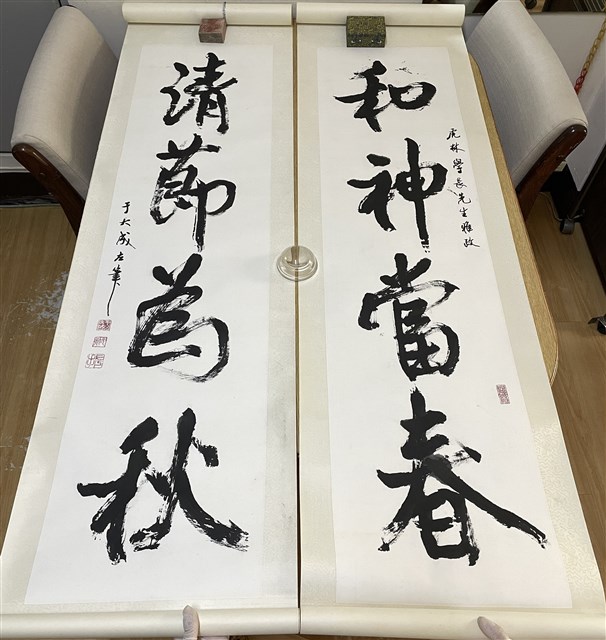 和神當春
虎林學長先生雅政
清節為秋
于大成左筆